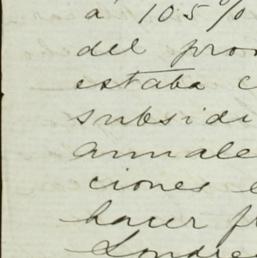 á 105%
del pro
estaba c
subsidi
anuale
ciones e
hacer fr
Londre